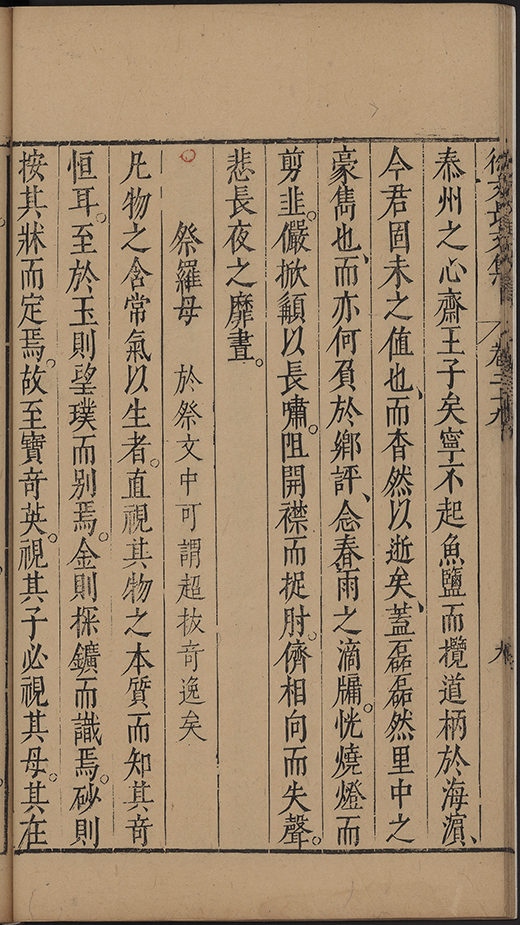 徐文長文集 卷二十九 九
泰州之心齋王子矣寧不起魚鹽而攬道柄於海濵、
今君固未之值也、而杳然以逝矣、蓋磊磊然里中之
豪雋也、而亦何負於鄉評、念春雨之滴牖。恍燒燈而
剪韭。儼掀顲以長嘯。咀開襟而捉肘。儕相向而失聲。
悲長夜之靡晝。
祭羅母 於祭文中可謂超拔奇逸矣
凡物之含常氣以生者。直視其物之本質而知其奇
恒耳。至於玉則望璞而别焉。金則探鑛而識焉。砂則
按其牀而定焉。故至寶奇英。視其子必視其母。其在